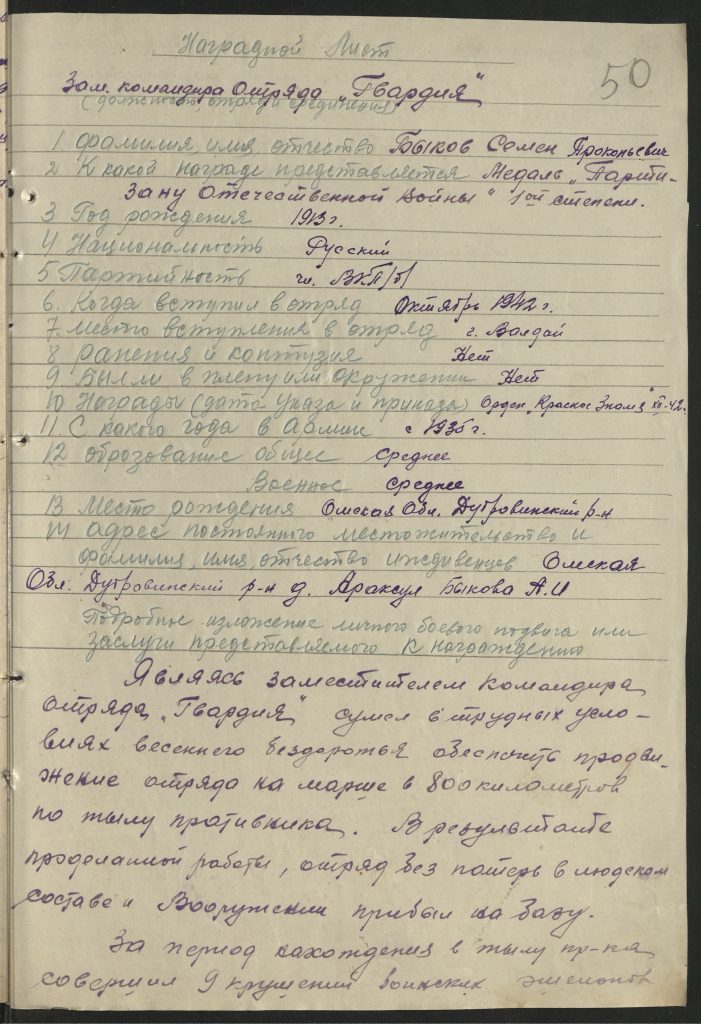 Наградной Лист
50
Зам. командира Отряда „Гвардия"
(должность, отряд и соединения)
1 фамилия, имя, отчество Быков Семен Прокопьевич
2 К какой награде представляется Медаль „Парти-
зану Отечественной Войны" 1ой степени.
3 Год рождения 1913 г.
4 Национальность Русский
5 Партийность чл. ВКП/б/
6. Когда вступил в отряд Октябрь 1942 г.
7. место вступления в отряд г. Валдай
8 ранения и контузия Нет
9. Был ли в плену или окружении Нет
10 Награды (дата указа и приказа) Орден „Красное Знамя" XII-42.
11. С какого года в Армии с 1935 г.
12 образование общее среднее
Военное среднее
13 Место рождения Омская Обл. Дубровинский р-н
14 адрес постоянного местожительство и
фамилия, имя, отчество иждивенцев Омская
Обл. Дубровинский р-н д. Араксул Быкова А.И
Подробные изложение личного боевого подвига или
заслуги представляемого к награждению
Являясь заместителем командира
отряда „Гвардия" сумел в трудных усло-
виях весеннего бездорожья обеспечить продви-
жение отряда на марше в 800 километров
по тылу противника. В результате
проделанной работы, отряд без потерь в людском
составе и Вооружении прибыл на базу.
За период нахождения в тылу пр-ка
совершил 9 крушений воинских эшелонов